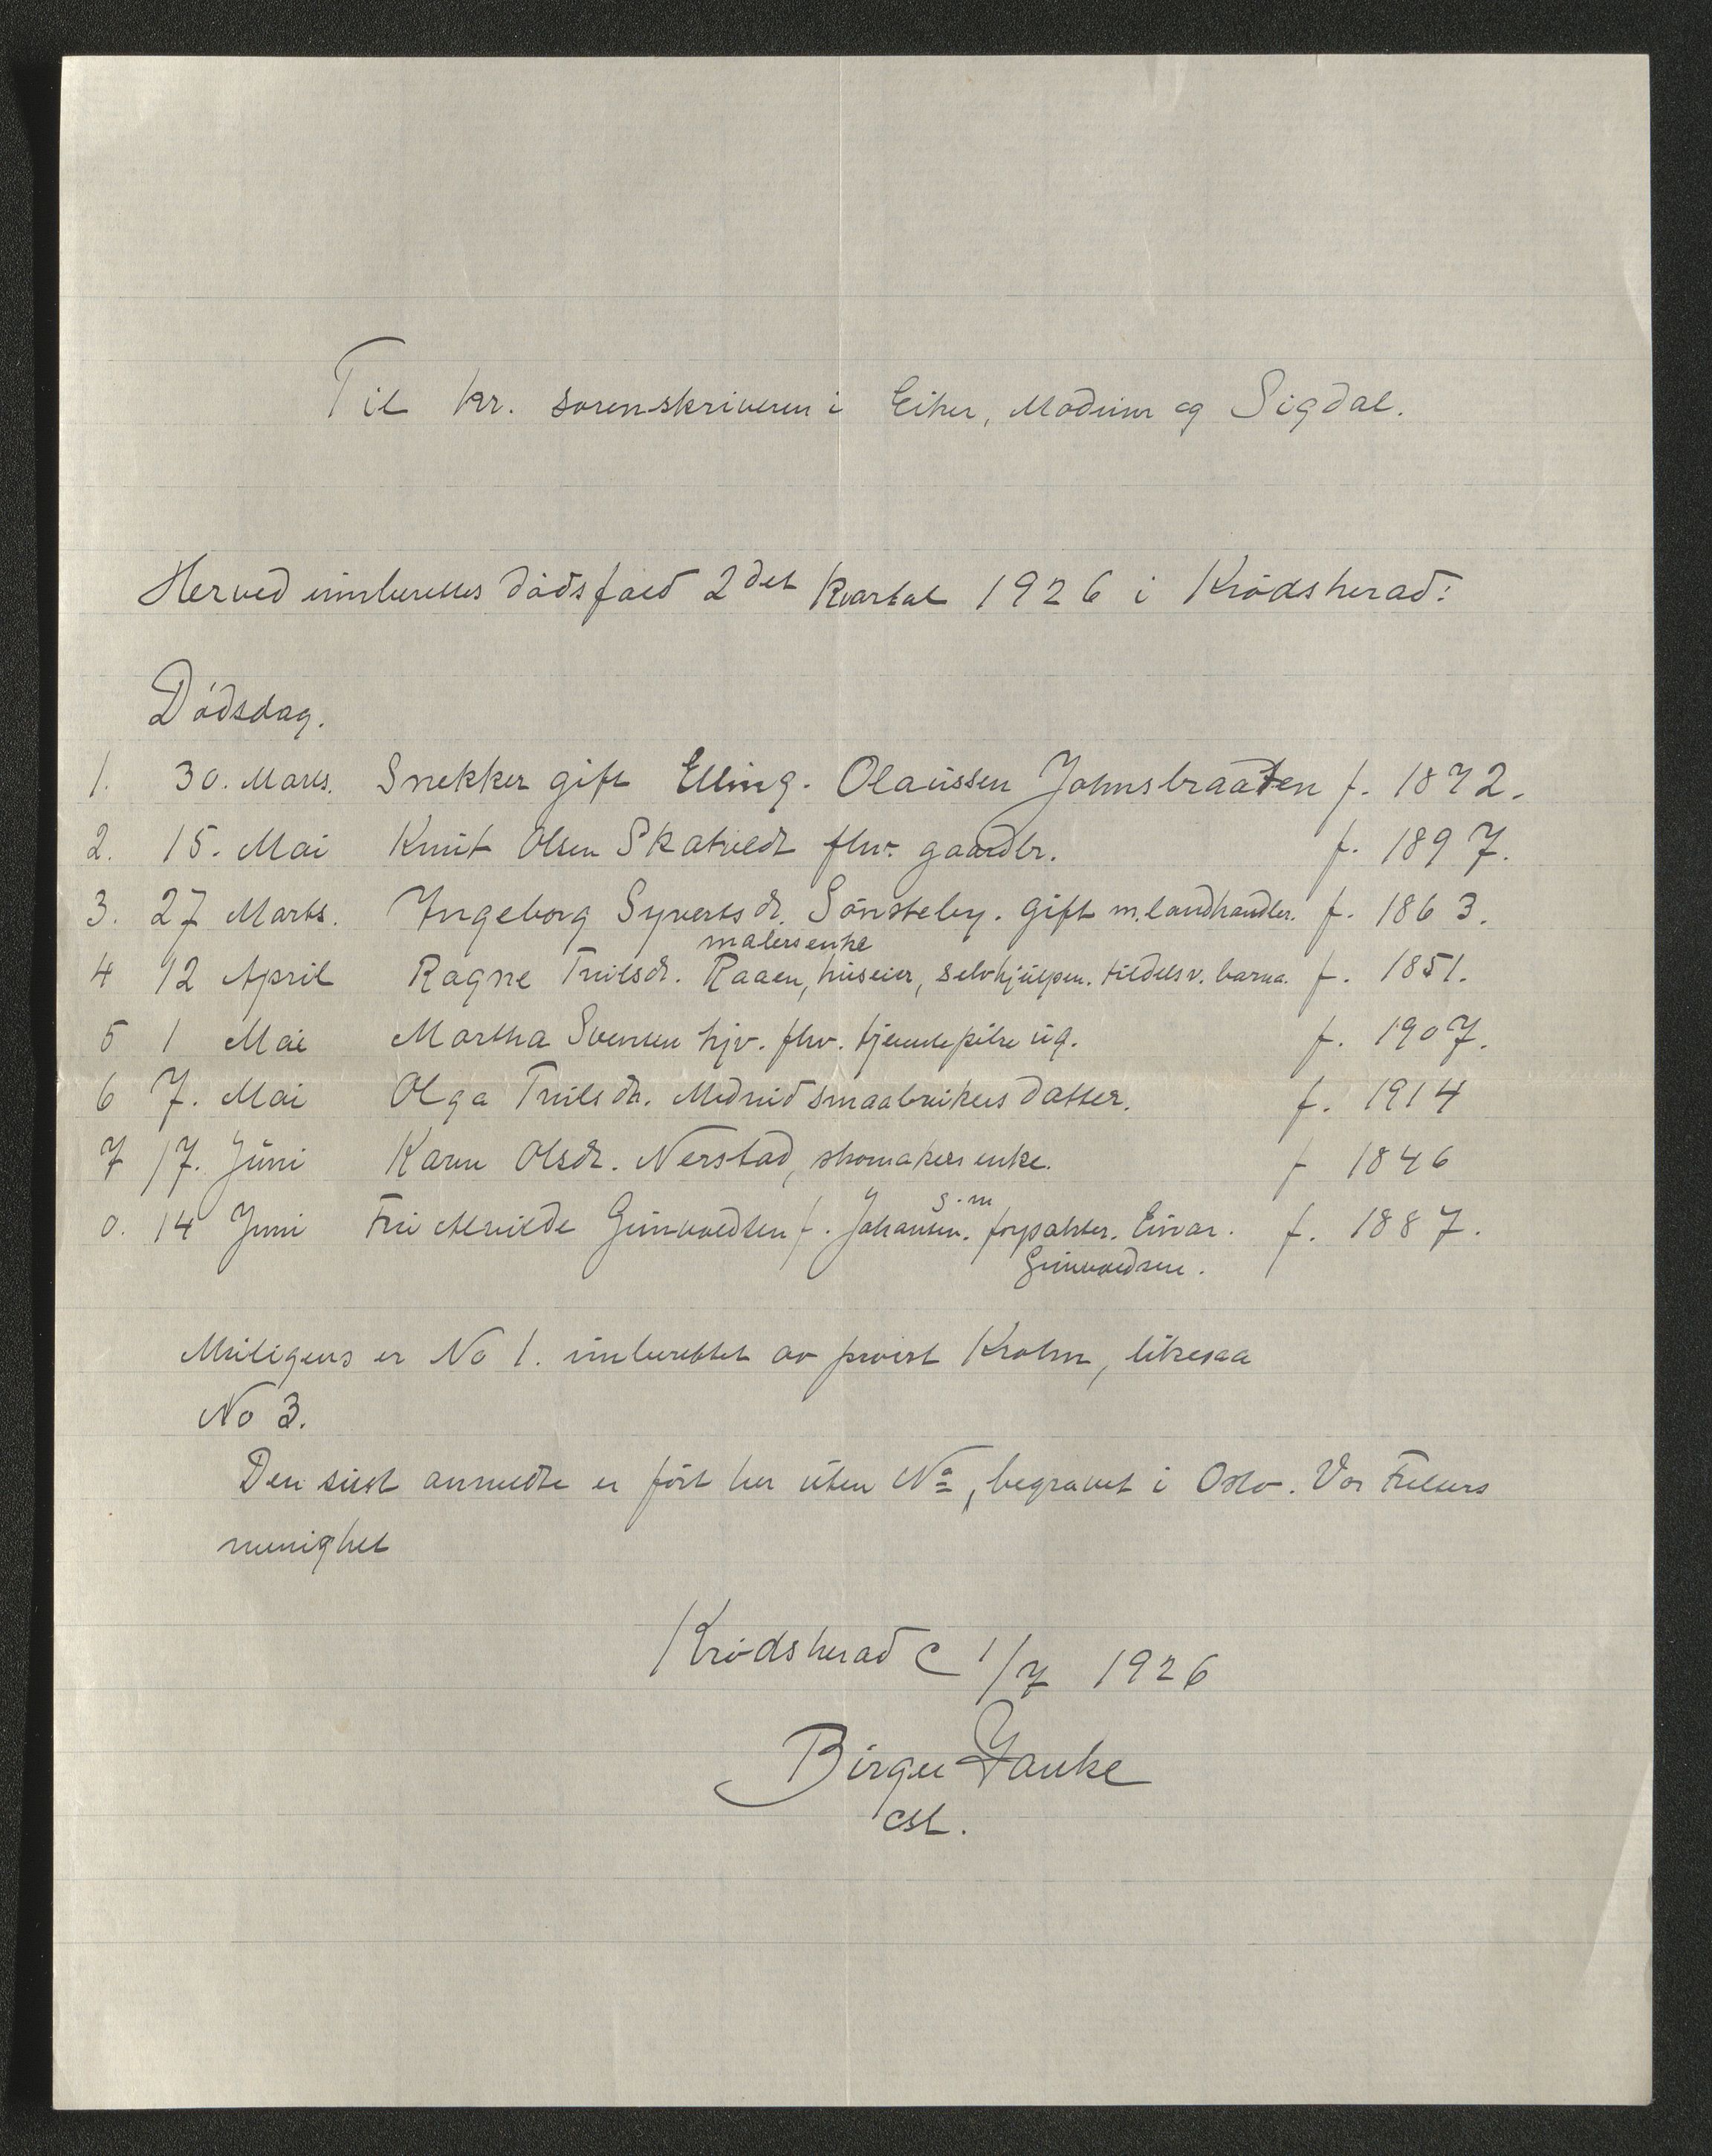 Til hr. sorenskriveren i Eiker, Modum og Sigdal.
Herved innberettes dødsfald 2det kvartal 1926 i Krødsherad:
Dødsdag.
1. 30. Marts. Snekker gift Elling. Olaussen Johnsbraaten f. 1872.
2. 15. Mai Knut Olsen Skatvedt fhv. gaardbr. f. 1897.
3. 27 Marts. Ingeborg Syvertsdr. Sønsteby. gift m. landhandler. f. 1863.
malersenke
4 12 April Ragne Trulsdr. Raaen, huseier, selvhjulpen. tildels v. barna. f. 1851.
5 1 Mai Martha Svensen hjv. fhv. tjenestepike ug. f. 1907.
6 7. Mai Olga Truls dr. Medrud smaabrukers datter. f. 1914
7 17. Juni Karen Olsdr. Nerstad, skomakers enke. f 1846
g. m
0. 14 Juni Fru Alvilde Gunvaldsen f. Johansen. forpakter. Einar. f. 1887.
Gunvaldsen.
Muligens er No 1. innberettet av provst Krohn, likesaa
No 3.
Den sist anmeldte er ført her uten No, begravet i Oslo. Vor Frelsers
menighet
Krødsherad 1/7 1926
Birger